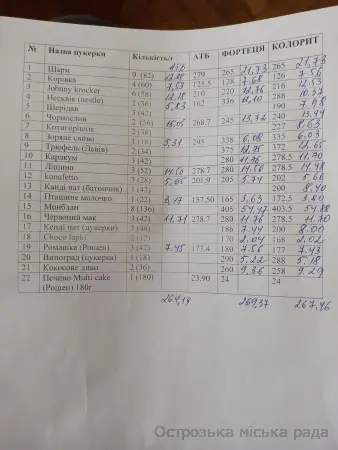 № Назва цукерки Кількість/ АТБ ФОРТЕЦЯ КОЛОРИТ
1 Шарм 9 (82) 279 265 21,73 265 21,73
2 Корівка 4 (60) 123.5 128 7,68 126 7.56
3 Johnny krocker 6 (58) 210 220 12,76 216 12,53
4 Несквік (nestle) 2 (36) 162 336 12,10 288 10,37
5 Шерідан 3 (42) 190 7,98
6 Чорнослив 2 (56) 268.7 245 13,72 240 13,44
7 Котигорішок 2 (38) 227 8,63
8 Зоряне сяйво 1 (18) 295 338 6,08 335 6,03
9 Трюфель (Львів) 2 (34) 375 12,75 372 12,65
10 Каракум 3 (42) 280 11,76 278.5 11,70
11 Ліщина 3 (52) 278.7 280 14,50 278.5 14,48
12 konafetto 3 (28) 201.9 205 5,74 202 5,66
13 Канді нат (батончик) 3 (42) 200 8,40
14 Пташине молочко 1 (22) 3,47 157.50 165 3,63 172.5 3,80
15 Монблан 8 (136) 405 403.5
16 Червоний мак 3 (42) 11,71 278.7 280 11,76 278.5 11,70
17 Кенді нат (цукерки) 3 (40) 186 7,44 200 8,00
18 Choco lapki 2 (12) 170 2,04 168 2,02
19 Ромашка (Рошен) 3 (42) 7.45 177.4 180 7,56 177 7,43
20 Виноград (цукерка) 1 (18) 290 5,22 288 5,18
21 Кокосове диво 2 (36) 260 9,36 258 9,29
22 Печиво Multi-cake 1 (180) 23.90 24 24
(Рошен) 180г
264,19 269,37 267,46
Острозька міська рада